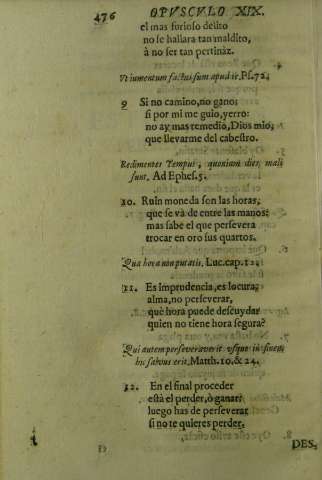 476 OPVSCVLO XIX.
el mas furioso delito
no se hallara tan maldito,
à no ser tan pertinàz.
Vt iumentum factus sum apud te. Ps. 72.
9 Si no camino, no gano;
si por mi me guio, yerro:
no ay mas remedio, Dios mio,
que llevarme del cabestro.
Redimentes Tempus, quoniam dies mali
sunt. Ad Ephes. 5.
10. Ruin moneda son las horas,
que se và de entre las manos:
mas sabe el que persevera
trocar en oro sus quartos.
Qua hora non putatis. Luc. cap. 12.
11. Es imprudencia, es locura,
alma, no perseverar,
què hora puede descuydar
quien no tiene hora segura?
Qui autem perseveraverit vsque in finem
hic salvus erit. Matth. 10. & 24.
12. En el final proceder
està el perder, ò ganar:
luego has de perseverar
si no te quieres perder.
DES-